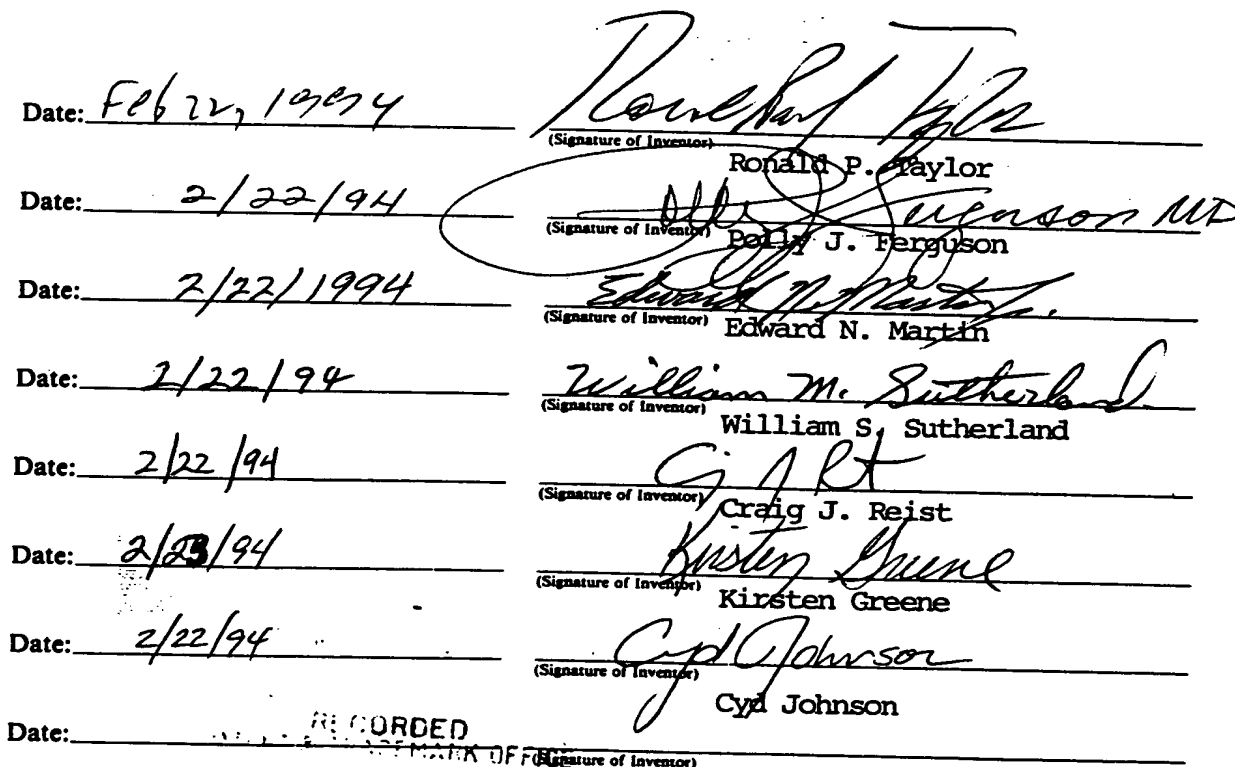 Date: Feb 22, 1994 Ronald Paul Taylor
(Signature of Inventor)
Ronald P. Taylor
Date: 2/22/94 Polly J Ferguson MD
(Signature of Inventor)
Polly J. Ferguson
Date: 2/22/1994 Edward N. Martin Jr.
(Signature of Inventor)
Edward N. Martin
Date: 2/22/94 William M. Sutherland
(Signature of Inventor)
William S. Sutherland
Date: 2/22/94
(Signature of Inventor)
Craig J. Reist
Date: 2/23/94 Kirsten Greene
(Signature of Inventor)
Kirsten Greene
Date: 2/22/94 Cyd Johnson
(Signature of Inventor)
Cyd Johnson
RECORDED
Date: MARK OFFICE
(Signature of Inventor)